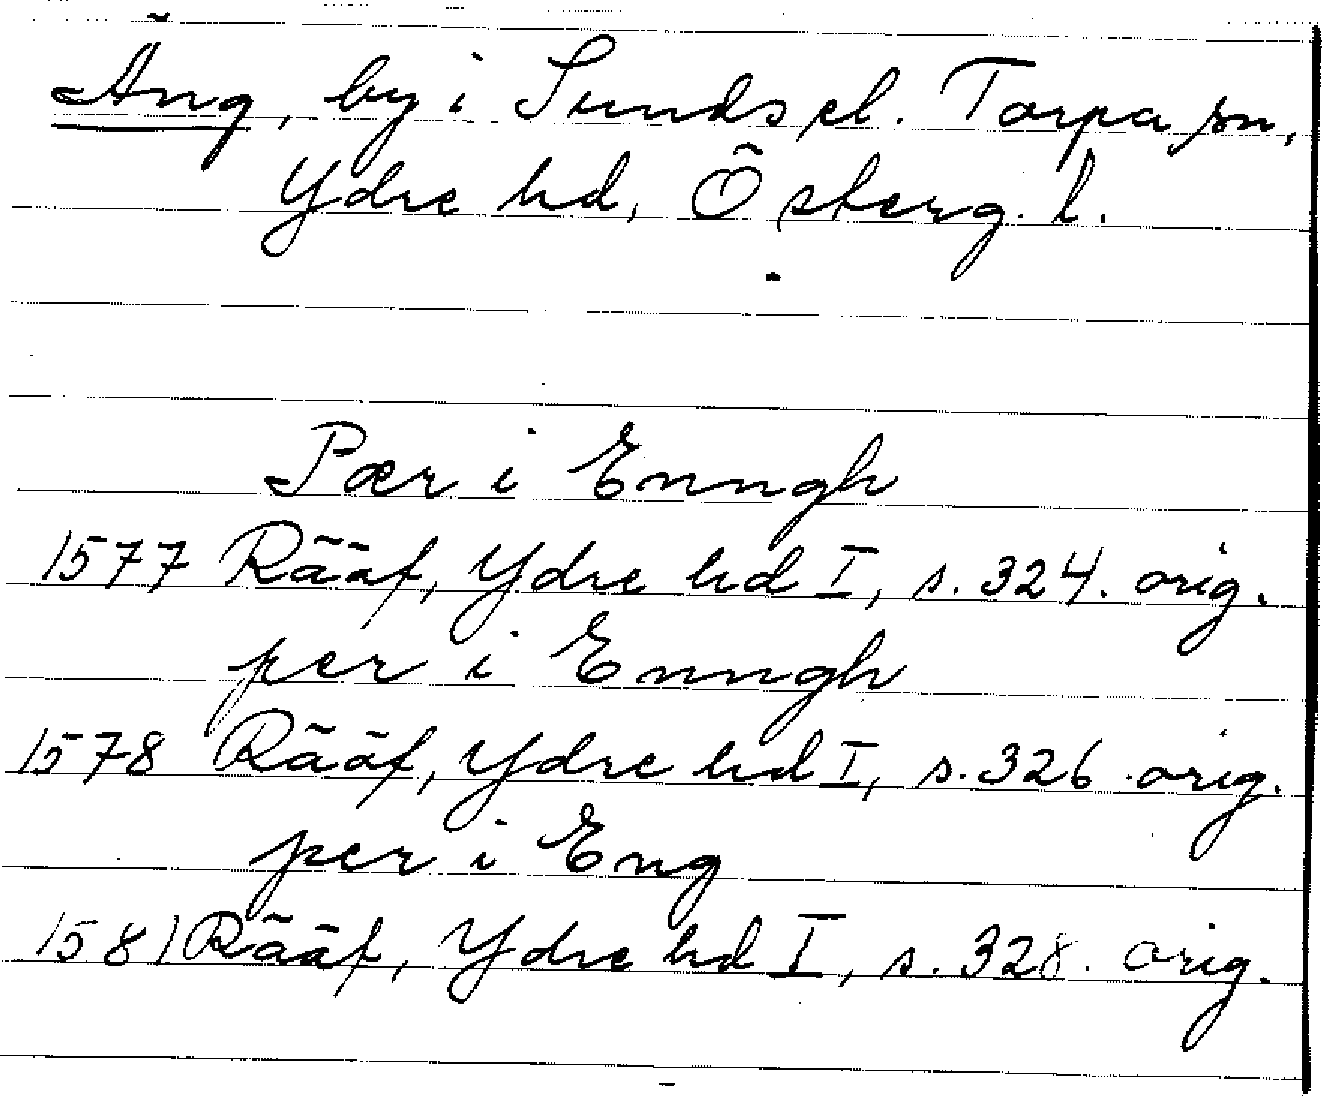 Äng, by i Sunds el. Torpa sn,
Ydre hd, Österg. l.
Pær i Enngh
1577 Rääf, Ydre hd I, s. 324. orig.
per i Enngh
1578 Rääf, Ydre hd I, s. 326 orig.
per i Eng
1581 Rääf, Ydre hd I, s. 328. orig.